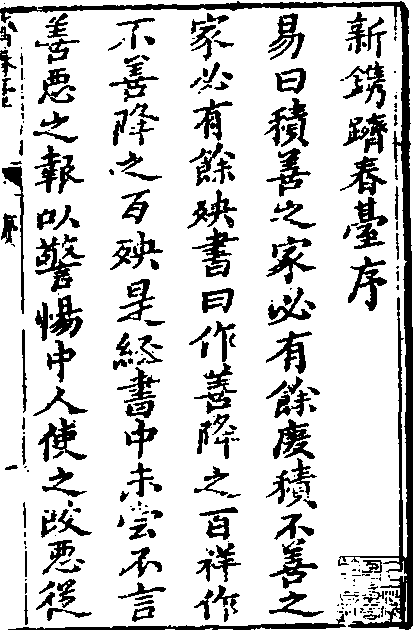 新鐫躋春臺序
易曰積善之家必有餘慶積不善之
家必有餘殃書曰作善降之百祥作
不善降之百殃是經書中未嘗不言
善惡之報以警惕中人使之改惡從